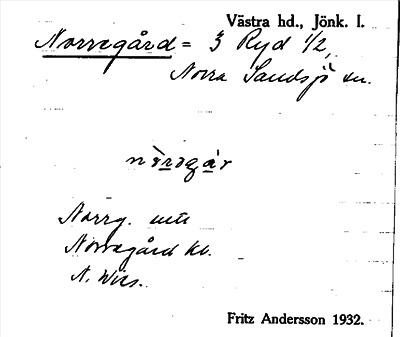 Västra hd., Jönk. l.
Norregård = 3 Ryd 1/2,
Norra Sandsjö sn.
Norrg. uttr
Norregård kb.
N. Wirs.
Fritz Andersson 1932.